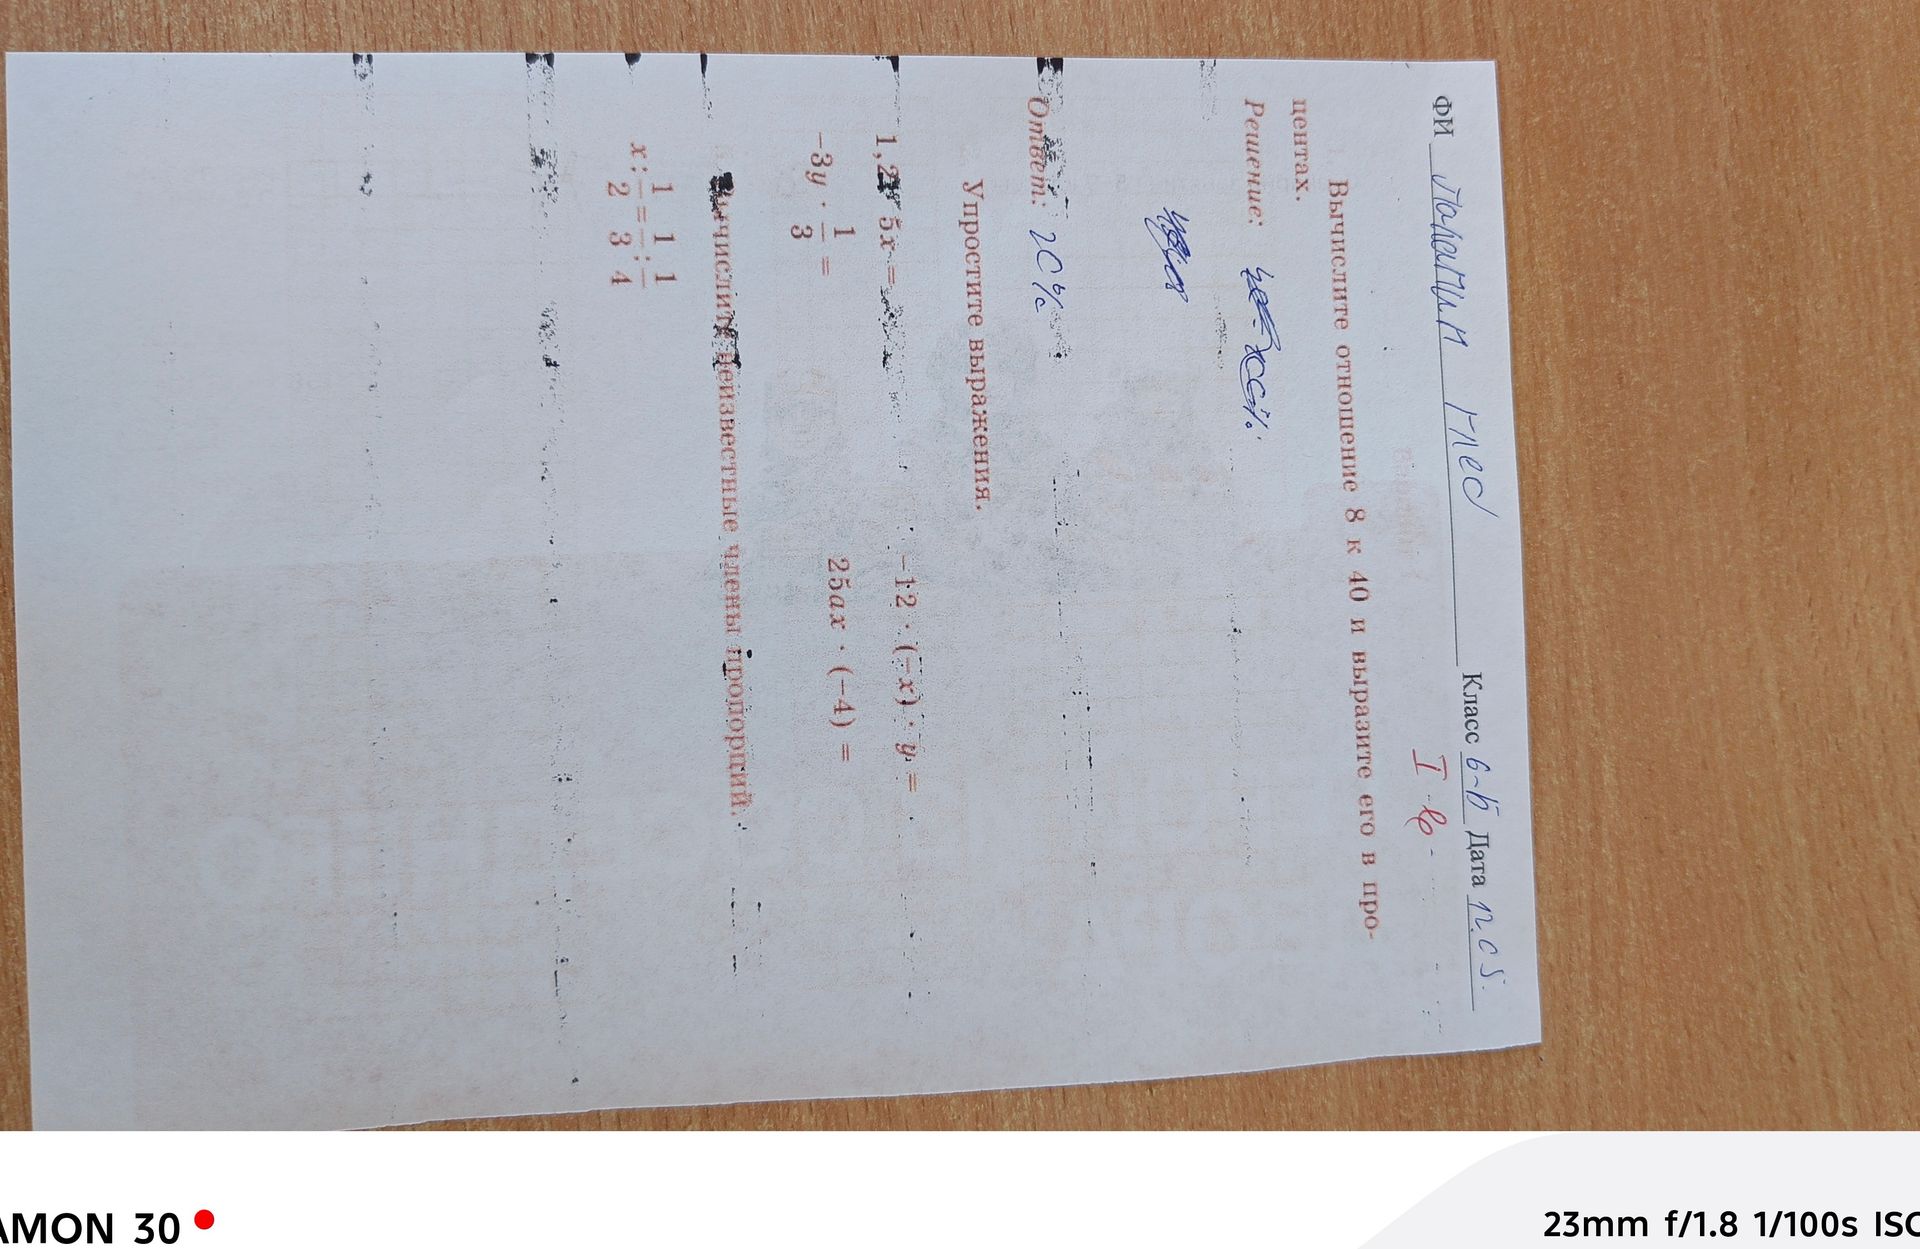 ФИ Глеб Класс 6-Б Дата 12.05.
I в.
Вычислите отношение 8 к 40 и выразите его в про-
центах.
Решение:
Ответ: 20%
Упростите выражения.
1,2 · 5x = −12 · (−x) · y =
−3y · 1/3 = 25ax · (−4) =
Вычислите неизвестные члены пропорций.
x : 1/2 = 1/3 : 1/4
AMON 30
23mm f/1.8 1/100s ISO